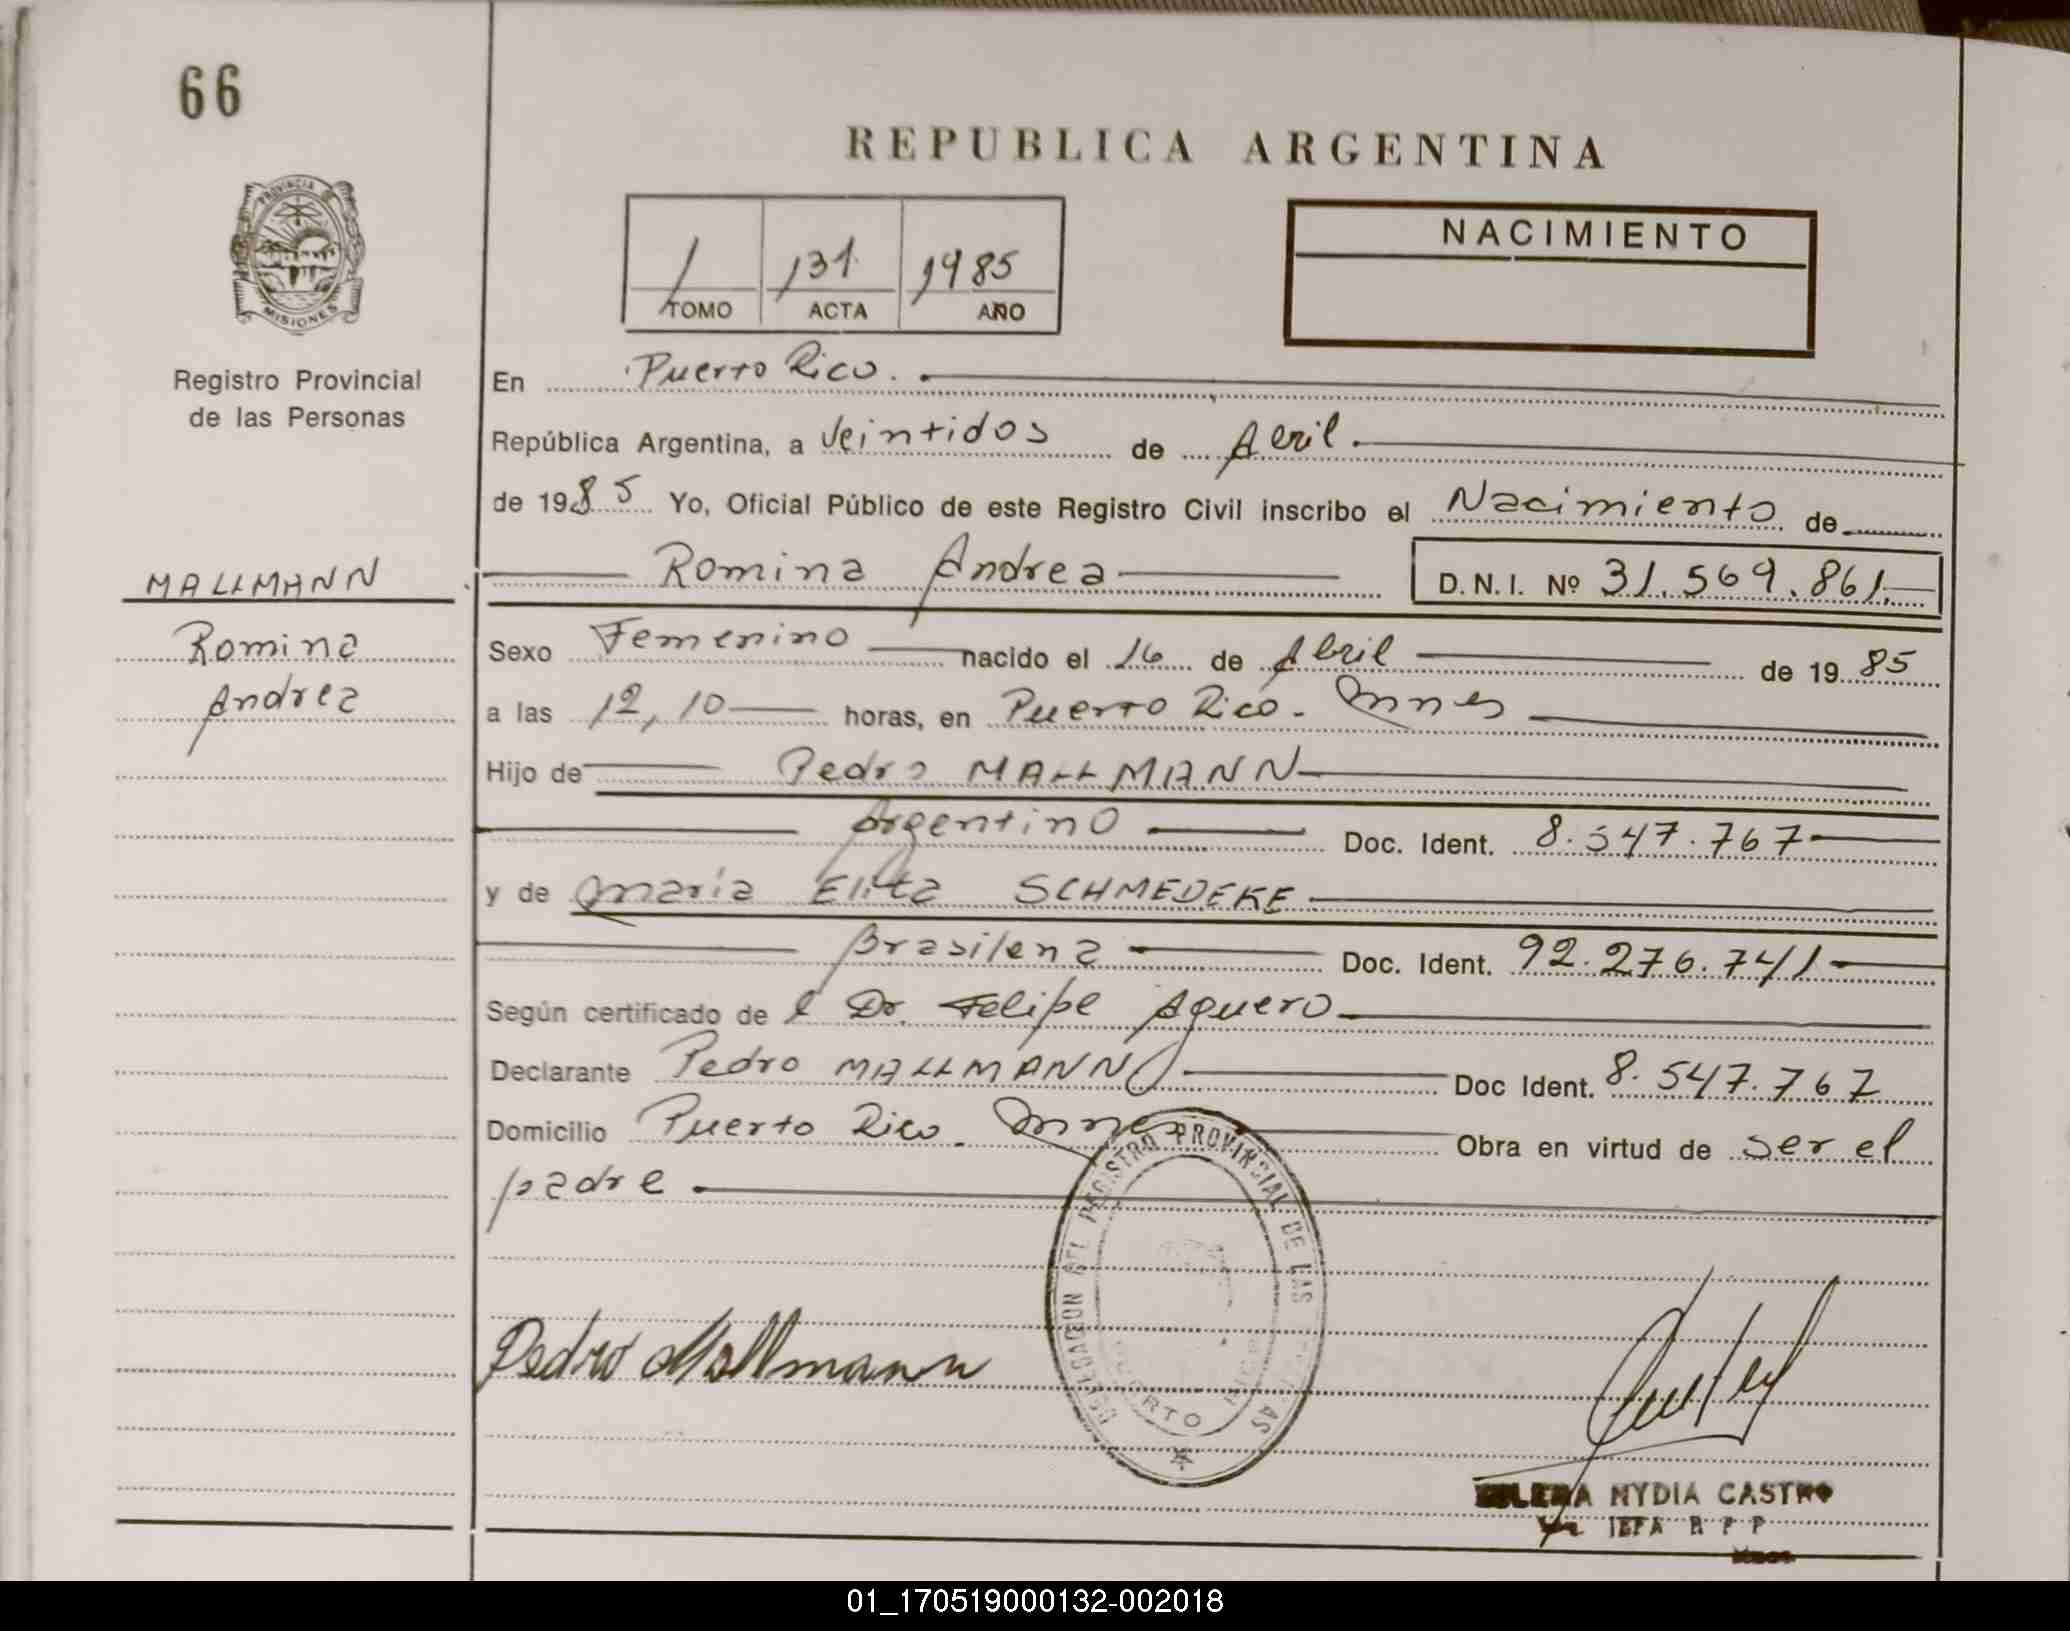 66
REPUBLICA ARGENTINA
PROVINCIA DE
MISIONES
Registro Provincial
de las Personas
1 131 1985
TOMO ACTA AÑO
NACIMIENTO
En Puerto Rico.
República Argentina, a Veintidos de Abril.
de 1985 Yo, Oficial Público de este Registro Civil inscribo el Nacimiento de
Romina Andrea D.N.I. Nº 31.569.861.
MALLMANN
Romina
Andrea
Sexo Femenino nacido el 16 de Abril de 1985
a las 12,10 horas, en Puerto Rico. Mnes
Hijo de Pedro MALLMANN
Argentino Doc. Ident. 8.547.767
y de Maria Elita SCHMEDEKE
Brasilena Doc. Ident. 92.276.741
Según certificado de l Dr. Felipe Aguero
Declarante Pedro MALLMANN Doc Ident. 8.547.767
Domicilio Puerto Rico. Mnes Obra en virtud de ser el
padre
DELEGACION DEL REGISTRO PROVINCIAL DE LAS
PUERTO RICO
Pedro Mallmann
NYDIA CASTRO
JEFA R P P
01_170519000132-002018